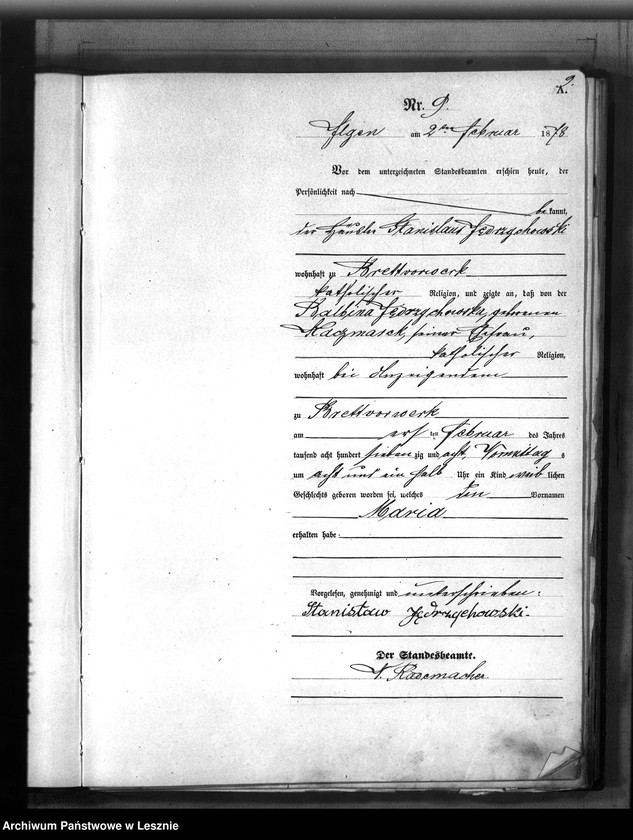 9.
A.
Nr. 9.
Ilgen am 2ten Februar 1878
Vor dem unterzeichneten Standesbeamten erschien heute, der
Persönlichkeit nach
be kannt,
der Häusler Stanislaus Jędrzychowski
wohnhaft zu Brettvorwerk
katholischer Religion, und zeigte an, daß von der
Balbina Jędrzychowska, geborenen
Kaczmarek, seiner Ehefrau,
katholischer Religion,
wohnhaft bei Anzeigendem
zu Brettvorwerk
am ersten Februar des Jahres
tausend acht hundert siebenzig und acht, Vormittags
um acht und ein halb Uhr ein Kind weiblichen
Geschlechts geboren worden sei, welches den Vornamen
Maria
erhalten habe.
Vorgelesen, genehmigt und unterschrieben:
Stanisław Jędrzychowski.
Der Standesbeamte.
Rademacher
Archiwum Państwowe w Lesznie